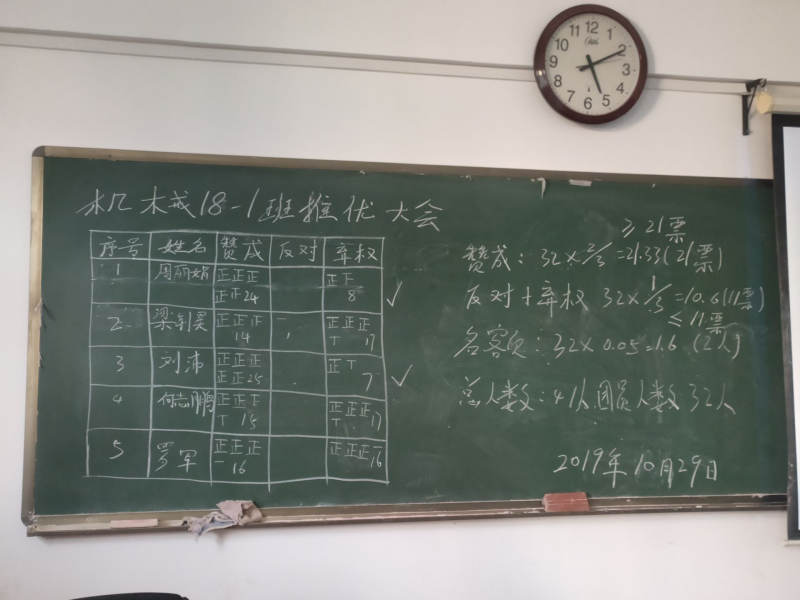 机械18-1班推优大会
序号 姓名 赞成 反对 弃权
1 周丽娟 正正正正正24 正下8 ✓
2 梁钊昊 正正下14 一, 正正正丅17
3 刘沛 正正正正正25 正丅7 ✓
4 何志鹏 正正下丅15 正正正丅17
5 罗军 正正正一16 正正正一16
≥21票
赞成：32×2/3=21.33(21票)
反对+弃权 32×1/3=10.6(11票)
≤11票
名额：32×0.05=1.6 (2人)
总人数：41人 团员人数 32人
2019年10月29日
12 1 2 3 4 5 6 7 8 9 10 11